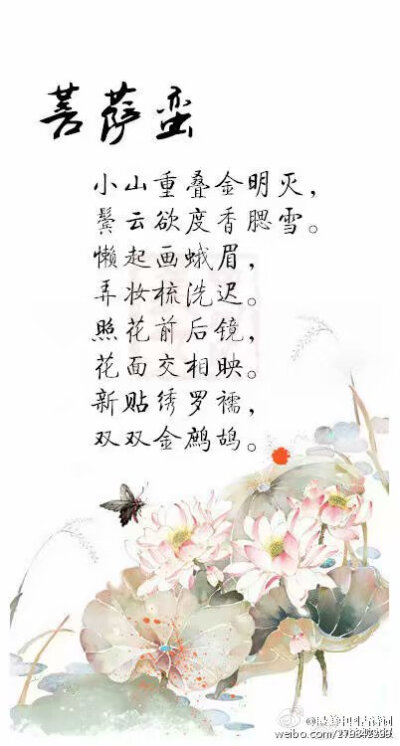 菩萨蛮
小山重叠金明灭，
鬓云欲度香腮雪。
懒起画蛾眉，
弄妆梳洗迟。
照花前后镜，
花面交相映。
新贴绣罗襦，
双双金鹧鸪。